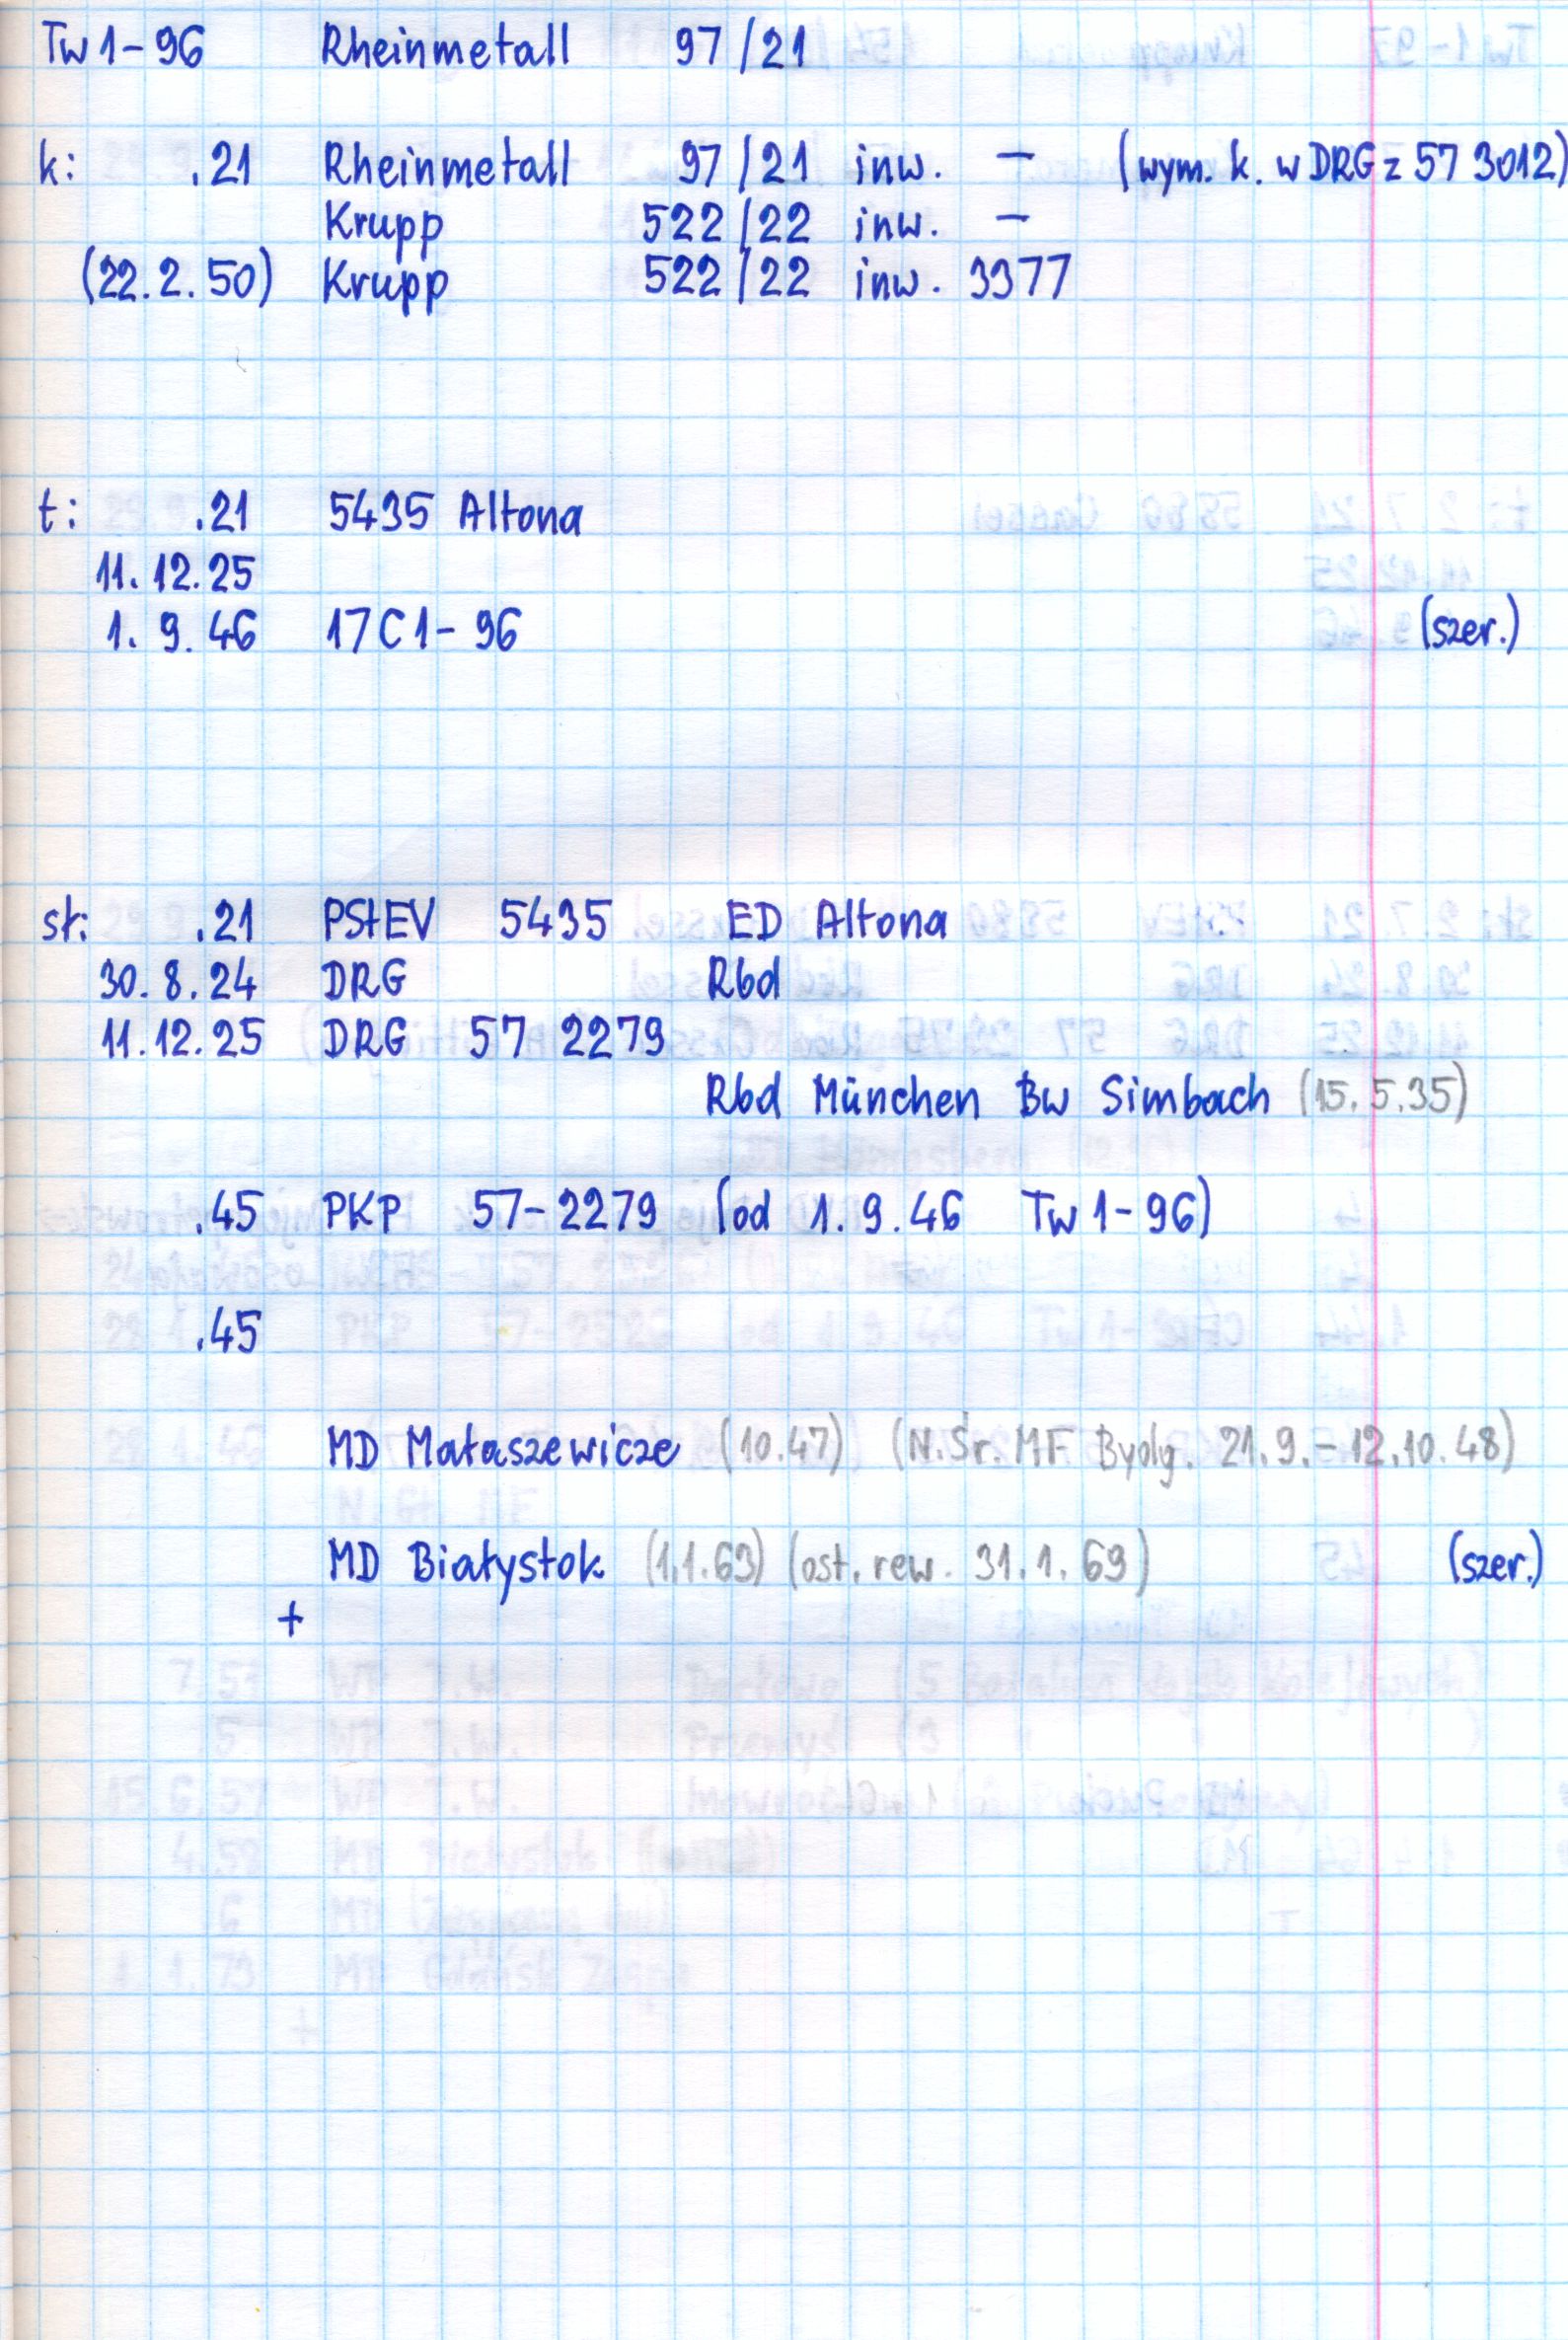 Tw 1-96 Rheinmetall 97/21
k: .21 Rheinmetall 97/21 inw. — (wym. k. w DRG z 57 3012)
Krupp 522/22 inw. —
(22.2.50) Krupp 522/22 inw. 3377
t: .21 5435 Altona
11.12.25
1.9.46 17C1-96 (szer.)
sł: .21 PStEV 5435 ED Altona
30.8.24 DRG Rbd
11.12.25 DRG 57 2279
Rbd München Bw Simbach (15.5.35)
.45 PKP 57-2279 (od 1.9.46 Tw 1-96)
.45
MD Małaszewicze (10.47) (N.Śr. MF Bydg. 21.9.-12.10.48)
MD Białystok (1.1.63) (ost. rew. 31.1.69) (szer.)
+